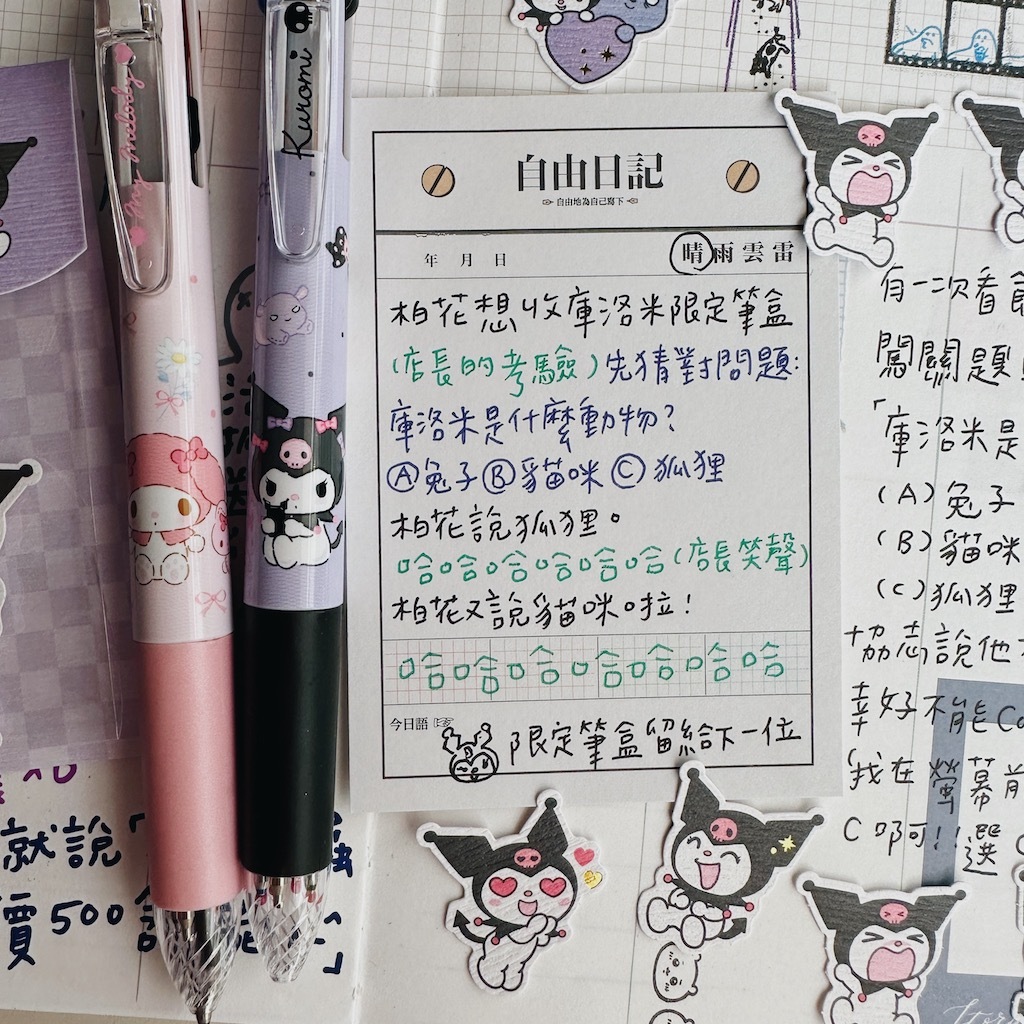 My Melody
Kuromi
自由日記
自由地為自己寫下
年 月 日
晴雨雲雷
柏花想收庫洛米限定筆盒
(店長的考驗)先猜對問題:
庫洛米是什麼動物?
Ⓐ兔子Ⓑ貓咪Ⓒ狐狸
柏花說狐狸。
哈哈哈哈哈哈(店長笑聲)
柏花又說貓咪啦!
哈哈哈哈哈哈哈
今日語
限定筆盒留給下一位
有一次看
闖關題
「庫洛米是
(A)兔子
(B)貓咪
(C)狐狸
協志說他
幸好不能Co
我在螢幕前
C啊!!選
就說「
價500